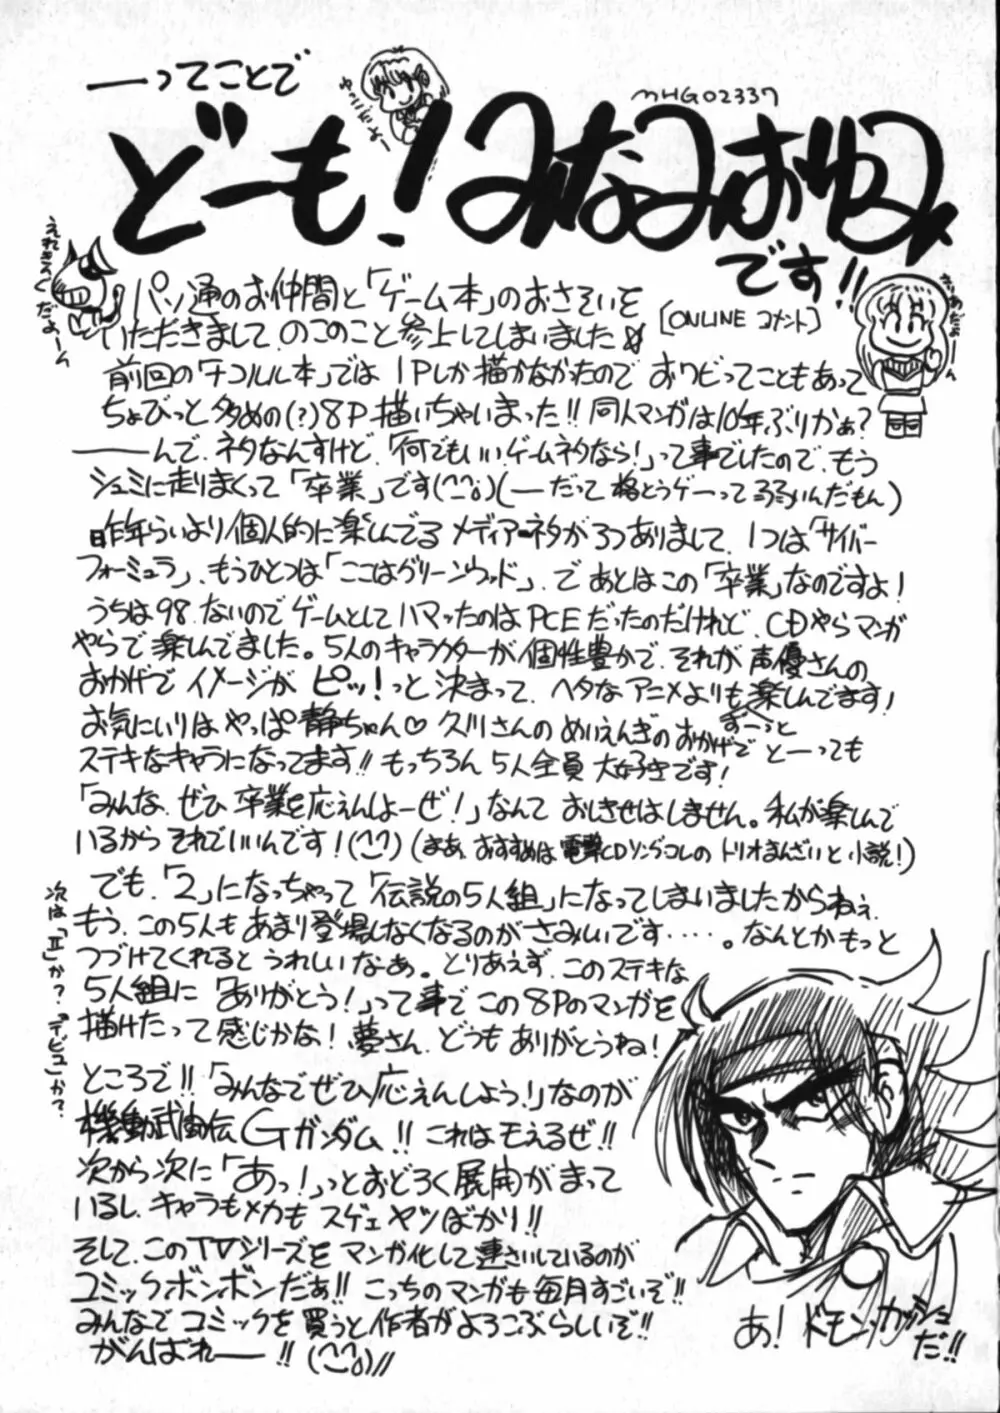 ──ってことで
ゆっこだよー
MHG02337
どーも!みなみおゆみ
です!!
えれきんぐだよーん
パソ通のお仲間と「ゲーム本」のおさそいを
いただきまして、のこのこと参上してしまいました
[ONLINE コメント]
前回の「ナコルル本」では1Pしか描かなかったので おワビってこともあって
ちょびっと多めの(?)8P描いちゃいまった!!同人マンガは10年ぶりかぁ?
───んで、ネタなんすけど、「何でもいい、ゲームネタなら!」って事でしたので、もう
シュミに走りまくって「卒業」です(^^;)(─だって格とうゲーって弱いんだもん)
昨年らいより個人的に楽しんでるメディアネタが3つありまして、1つは「サイバー
フォーミュラ」、もうひとつは「ここはグリーンウッド」、で あとはこの「卒業」なのですよ!
うちは98、ないのでゲームとしてハマったのはPCEだったのだけれど、CDやらマンガ
やらで楽しんでました。5人のキャラクターが個性豊かで、それが声優さんの
おかげでイメージがピッ!っと決まって、ヘタなアニメよりもずーっと楽しんでます!
お気にいりはやっぱ静ちゃん♡久川さんのめいえんぎのおかげでとーっても
ステキなキャラになってます!!もっちろん5人全員大好きです!
「みんな、ぜひ卒業を応えんしよーぜ!」なんて おしきせはしません。私が楽しんで
いるからそれでいいんです!(^^)(まあ、おすすめは電撃CDソングコレのトリオまんざいと小説!)
でも、「2」になっちゃって「伝説の5人組」になってしまいましたからねぇ、
もう、この5人もあまり登場しなくなるのがさみしいです‥‥。なんとかもっと
つづけてくれるとうれしいなあ。とりあえず、このステキな
5人組に「ありがとう!」って事でこの8Pのマンガを
描けたって感じかな!夢さん、どうもありがとうね!
次は「II」か?「デビュ」か?
ところで!!「みんなでぜひ応えんしよう!」なのが
機動武闘伝Gガンダム!!これはもえるぜ!!
次から次に「あっ!」っとおどろく展開がまって
いるし、キャラもメカもスゲェヤツばかり!!
そして、このTVシリーズをマンガ化して連さいしているのが
コミックボンボンだぁ!!こっちのマンガも毎月すごいぞ!!
みんなでコミックを買うと作者がよろこぶらしいぞ!!
がんばれ──!!(^^;)//
あ!ドモン・カッシュ
だ!!